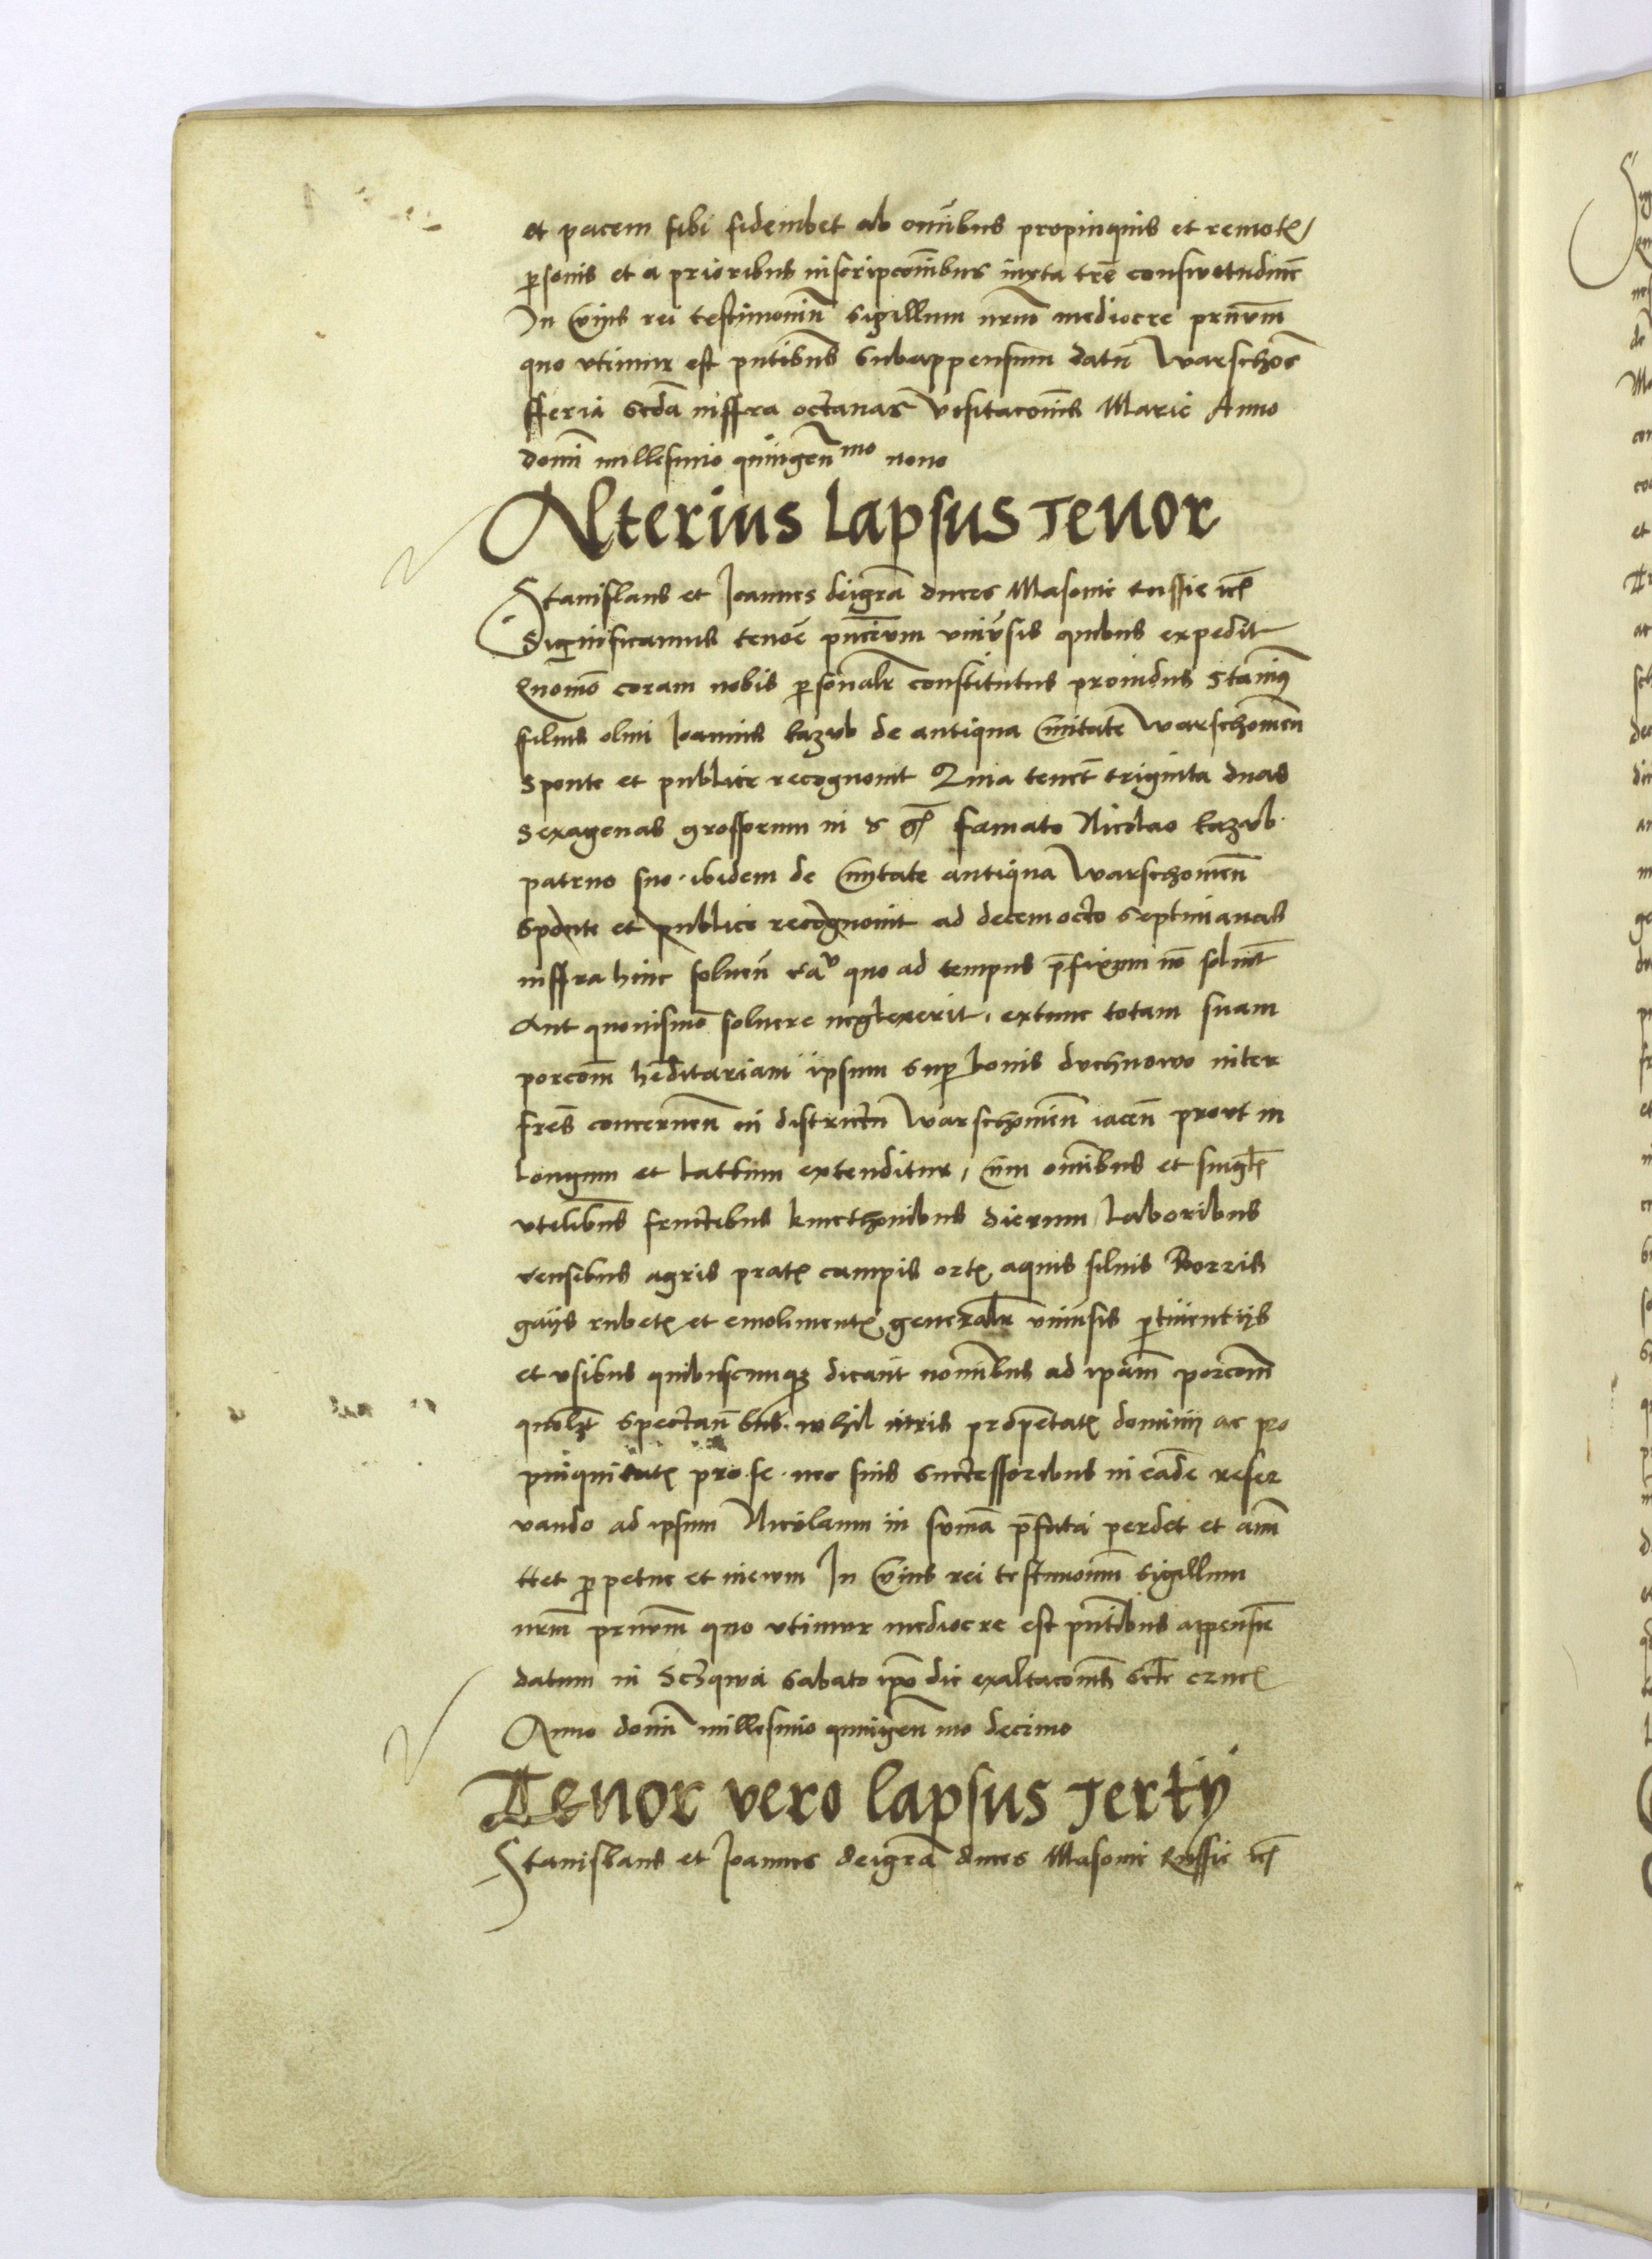 et pacem sibi fideiubet ab omībus propinquis et remotꝭ
ꝑsonis et a prioribus inscripcoībus iuxta trē consuetudinē
In cuius rei testimoniū sigillum nrūm mediocre prnūm
quo vtimur est pntībus subappensum datū Warschoē
fferia scdā inffra octauas Visitacoīs Marie Anno
domī millesimo quingen̄mo nono
Alterius lapsus Tenor
Stanislaus et Joannes deigrā duces Masouie russie ꝛcꝭ
Significamus tenōe pn̄cium vniūsis quibus expedit
Quomō coram nobis ꝑsonalr̄ constitutus prouidus Stanisꝰ
filius olim Joannis kazub de antiqua Ciuitate Warschouien̄
sponte et publice recognouit Quia tenet̄ triginta duas
sexagenas grossorum in gꝭ famato Nicolao kazub
patruo suo ibidem de Ciuitate antiqua Warschouien̄
sponte et publice recognouit ad decemocto septimanas
inffra hinc soluen̄ quo ad tempus p̄fixum nō soluet̄
Aut quouismō soluere neglexerit, extunc totam suam
porcoēm hēditariam ipsum suꝑ bonis duchnowo inter
frēs concernen̄ in districtu Warschouien̄ iacen̄ prout in
longum et lattum extenditur, cum omībus et singlꝭ
vtilibūs fructibus kmethonibus dierum laboribus
censibus agris pratꝭ campis ortꝭ aquis siluis Borris
gaijs rubetꝭ et emolimentꝭ generalr̄ vniūsis ꝑtinentijs
et vsibus quibuscumqꝫ dicant̄ nomībus ad ipām porcoēm
quolꝫt spectan̄bus nihil iuris propē̄tatꝭ dominij ac pro
pinquitatꝭ pro se nec suis successoribus in eadē reser
uando ad ipsum Nicolaum in summā p̄fatā perdet et ami
ttet ꝑpetue et in euum In Cuius rei testimonium sigillum
nrūm prnūm quo vtimur mediocre est pn̄tibus appensū
datum in sabato ipō die exaltacoīs scte crucꝭ
Anno domī millesimo quingen̄mo decimo
Tenor vero lapsus Tertij
Stanislaus et Joannes deigrā duces Masouie Russie ꝛcꝭ